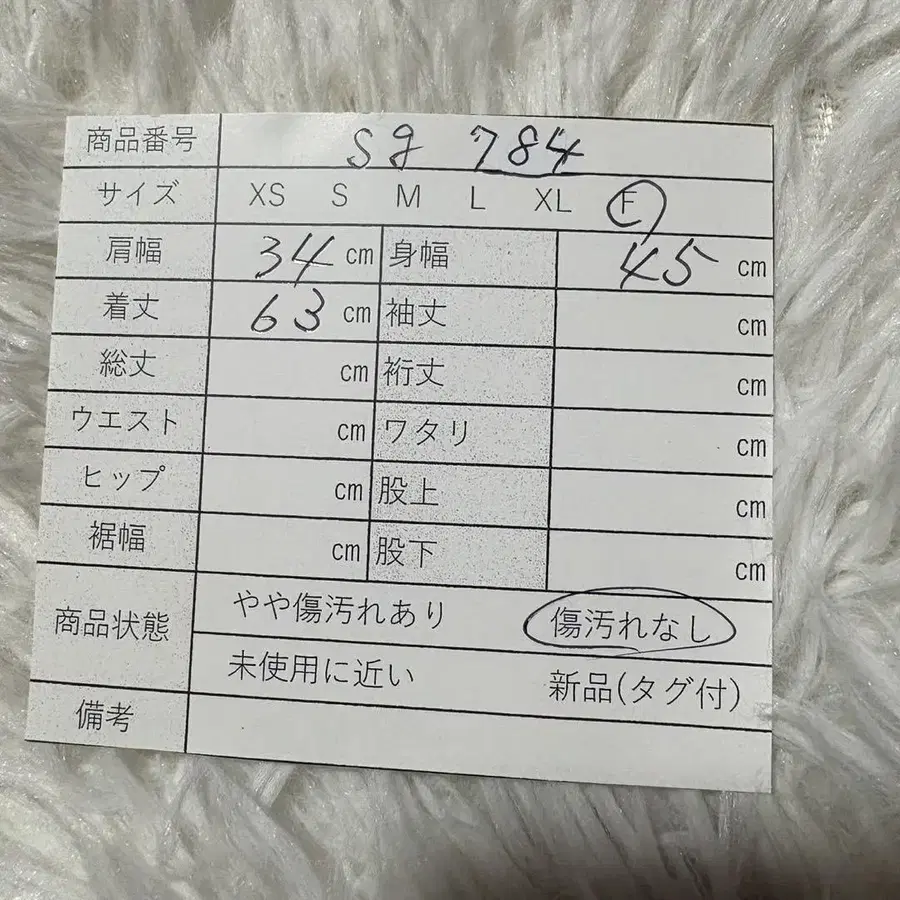 商品番号 sg 784
サイズ XS S M L XL F
肩幅 34 cm 身幅 45 cm
着丈 63 cm 袖丈 cm
総丈 cm 裄丈 cm
ウエスト cm ワタリ cm
ヒップ cm 股上 cm
裾幅 cm 股下 cm
商品状態 やや傷汚れあり 傷汚れなし
未使用に近い 新品(タグ付)
備考